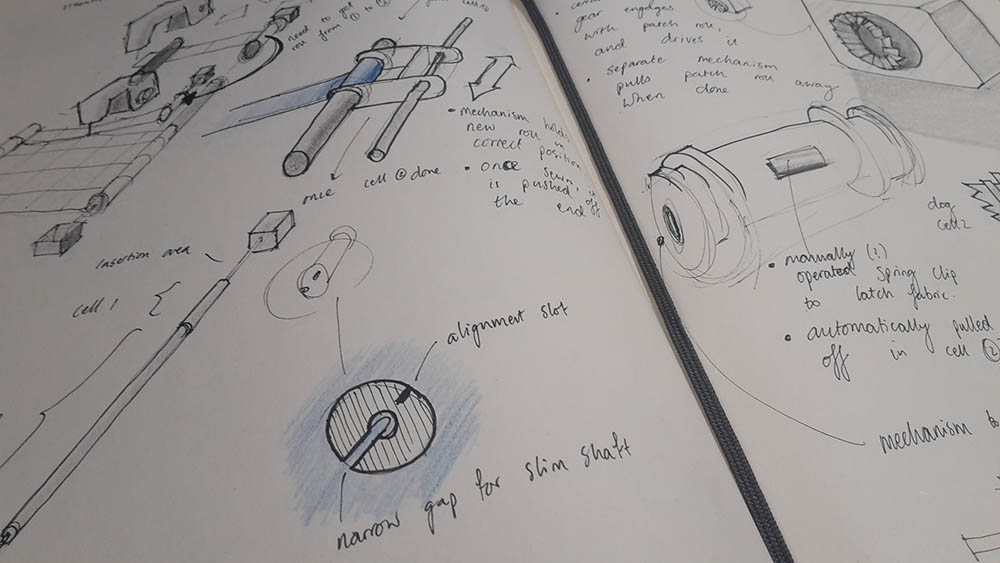 need to get
roll from ① to ②
cell ①
• mechanism holds
new roll in
correct position
• once sewn, is
is pushed off
the end
once cell ① done
insertion area
cell 1
alignment slot
narrow gap for slim shaft
gear engages
with patch roll,
and drives it
• separate mechanism
pulls patch roll away
when done
dog
cell 2
• manually (?)
operated spring clip
to latch fabric.
• automatically pulled
off in cell ②
mechanism